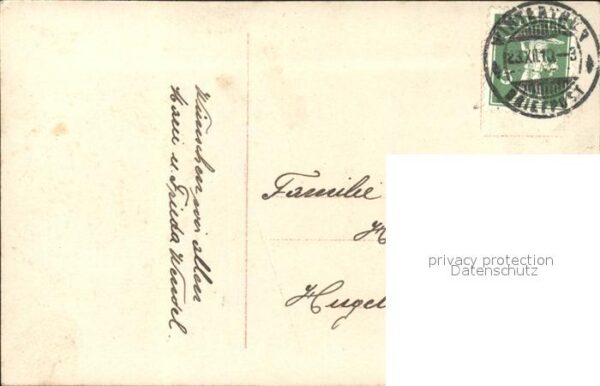 Wünschen wir allen
Hani u. Frieda Wendel.
WINTERTHUR
23.XII.10.-8
BRIEFPOST
Familie
Hugel
privacy protection
Datenschutz